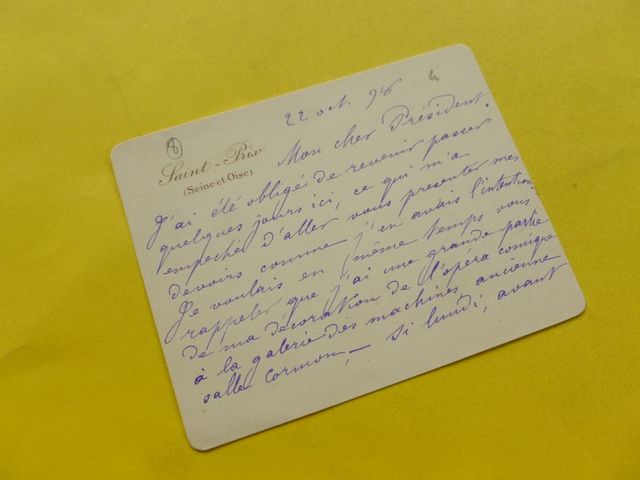 22 oct. 98
Saint-Prix
(Seine-et-Oise)
Mon cher Président.
J'ai été obligé de revenir passer
quelques jours ici, ce qui m'a
empeché d'aller vous presenter mes
devoirs comme j'en avais l'intention.
Je voulais en même temps vous
rappeler que j'ai une grande partie
de ma décoration de l'opéra comique
à la galerie des machines ancienne
salle Cormon,— Si lundi, avant